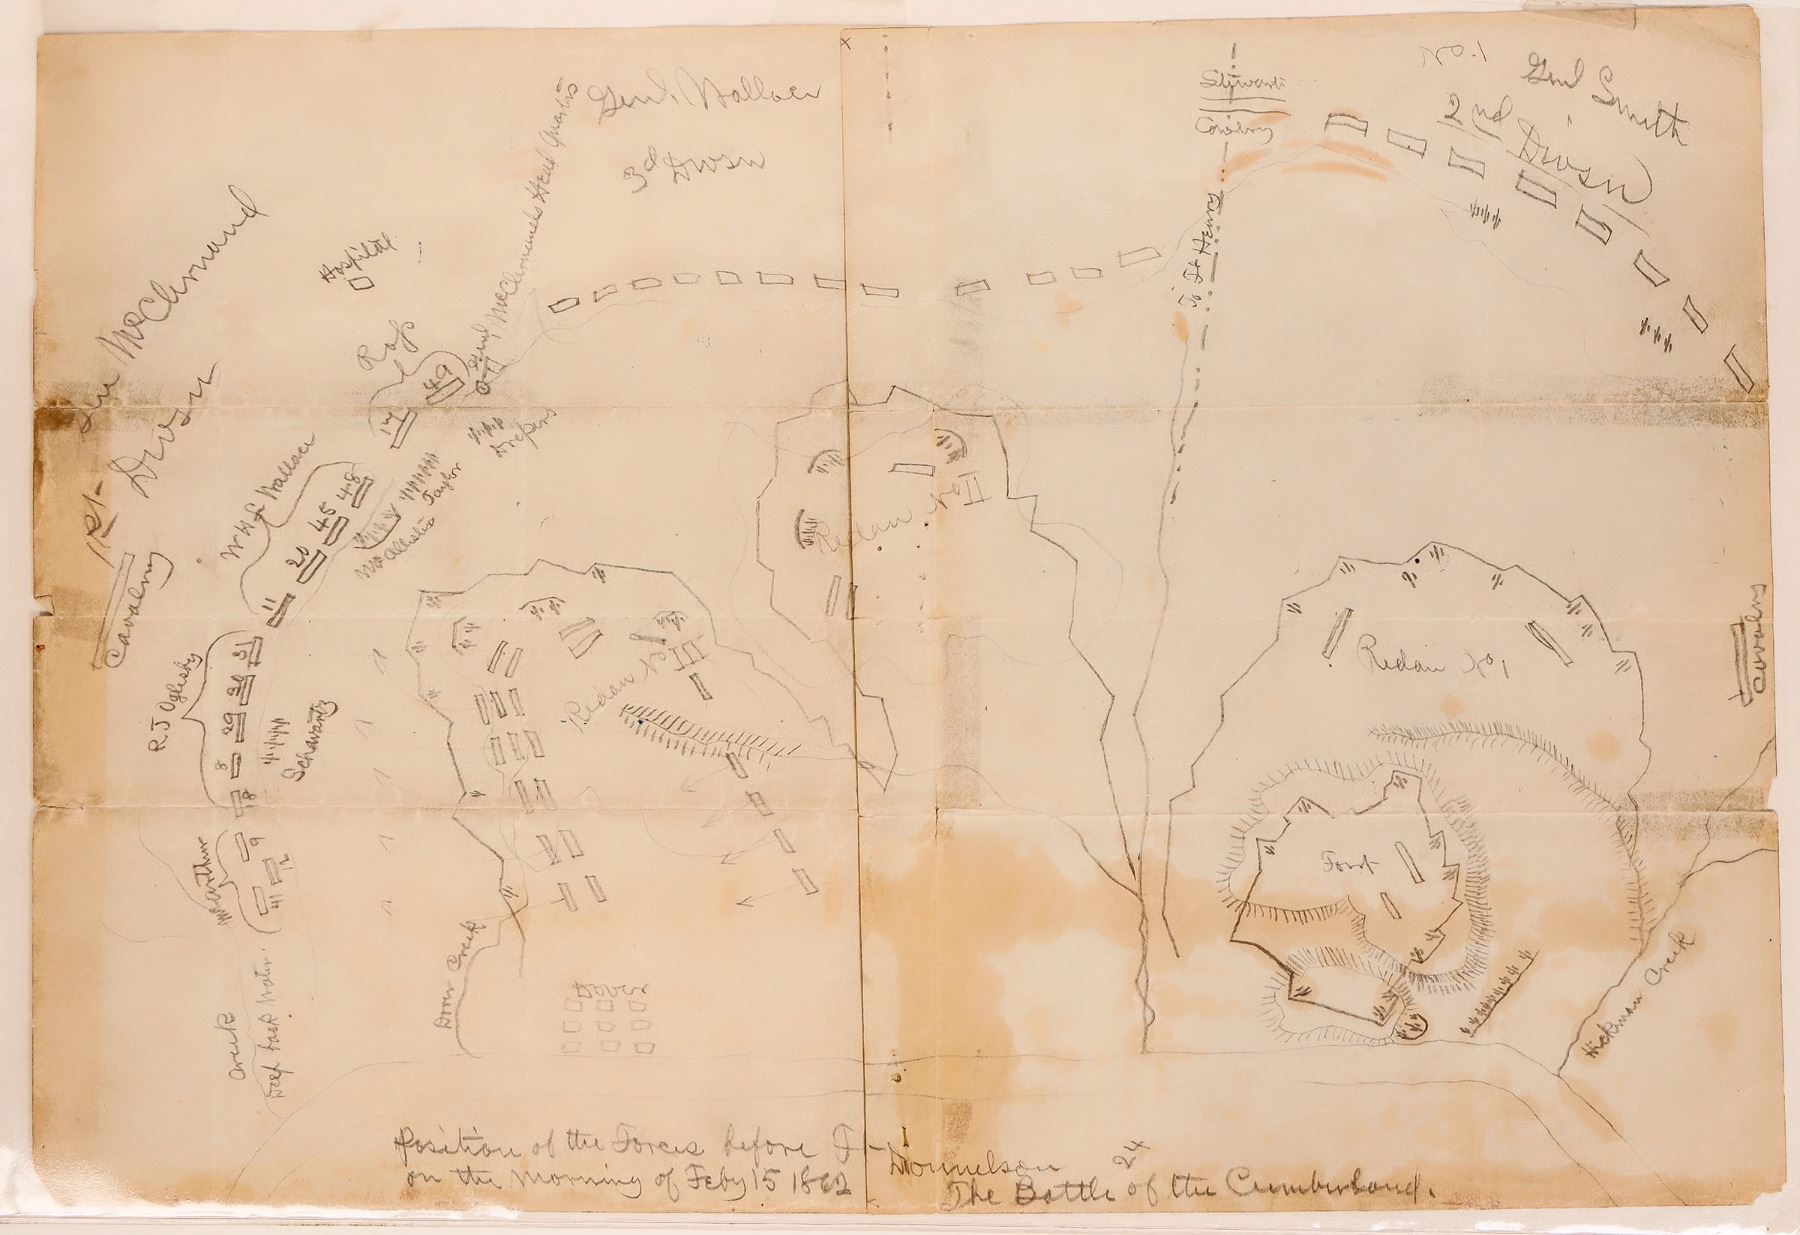 Genl. Wallace
3d Divsn
No. 1
Genl Smith
2nd Divsn
Stewarts
Cavalry
To Ft Henry
Genl McClernands Head Quarters
Hospital
McClernand
1st Divsn
Cavalry
Ross
17
49
Drepers
W H L Wallace
11
20
45
48
McAllister
Taylor
R. J Oglesby
8
29
30
31
18
Schwartz
McArthur
9
12
41
Creek
Deep back Water
Dover Creek
Dover
Redan No III
Redan No II
Redan No 1
Fort
Cavalry
Hickman Creek
Position of the Forces before Ft Donnelson
on the Morning of Feby 15 1862
24
The Battle of the Cumberland.